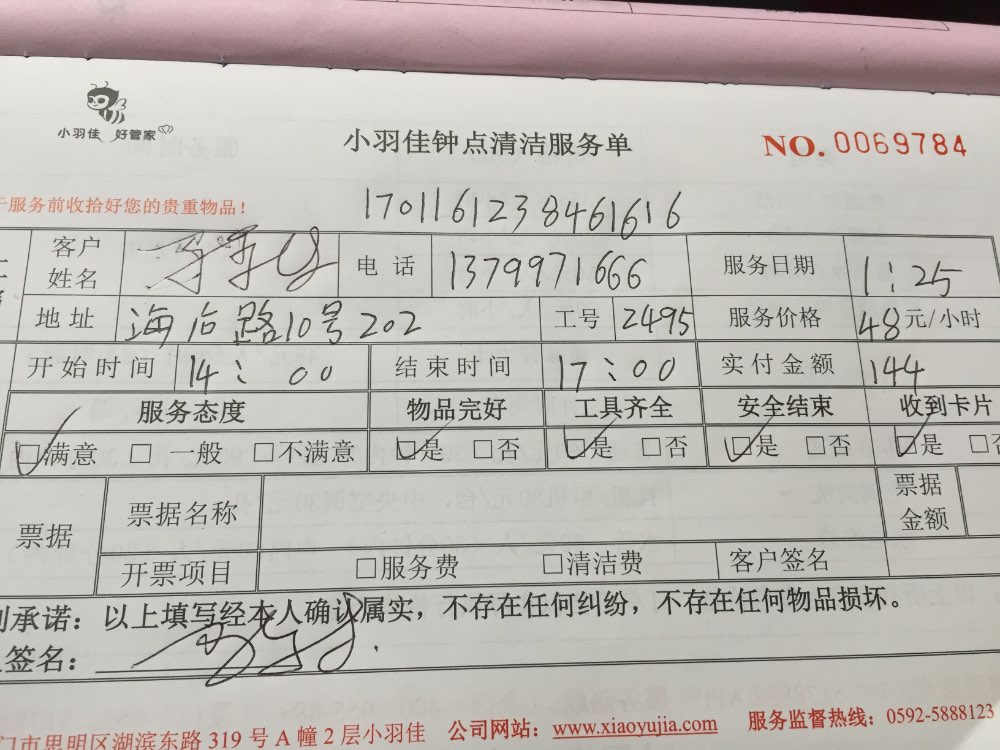 小羽佳 好管家
小羽佳钟点清洁服务单
NO. 0069784
于服务前收拾好您的贵重物品！
1701161238461616
客户姓名 电话 1379971666 服务日期 1:25
地址 海后路10号202 工号 2495 服务价格 48元/小时
开始时间 14:00 结束时间 17:00 实付金额 144
服务态度 物品完好 工具齐全 安全结束 收到卡片
☑满意 □一般 □不满意 ☑是 □否 ☑是 □否 ☑是 □否 ☑是 □否
票据 票据名称 票据金额
开票项目 □服务费 □清洁费 客户签名
承诺：以上填写经本人确认属实，不存在任何纠纷，不存在任何物品损坏。
签名：
门市思明区湖滨东路 319 号 A 幢 2 层小羽佳 公司网站：www.xiaoyujia.com 服务监督热线：0592-5888123